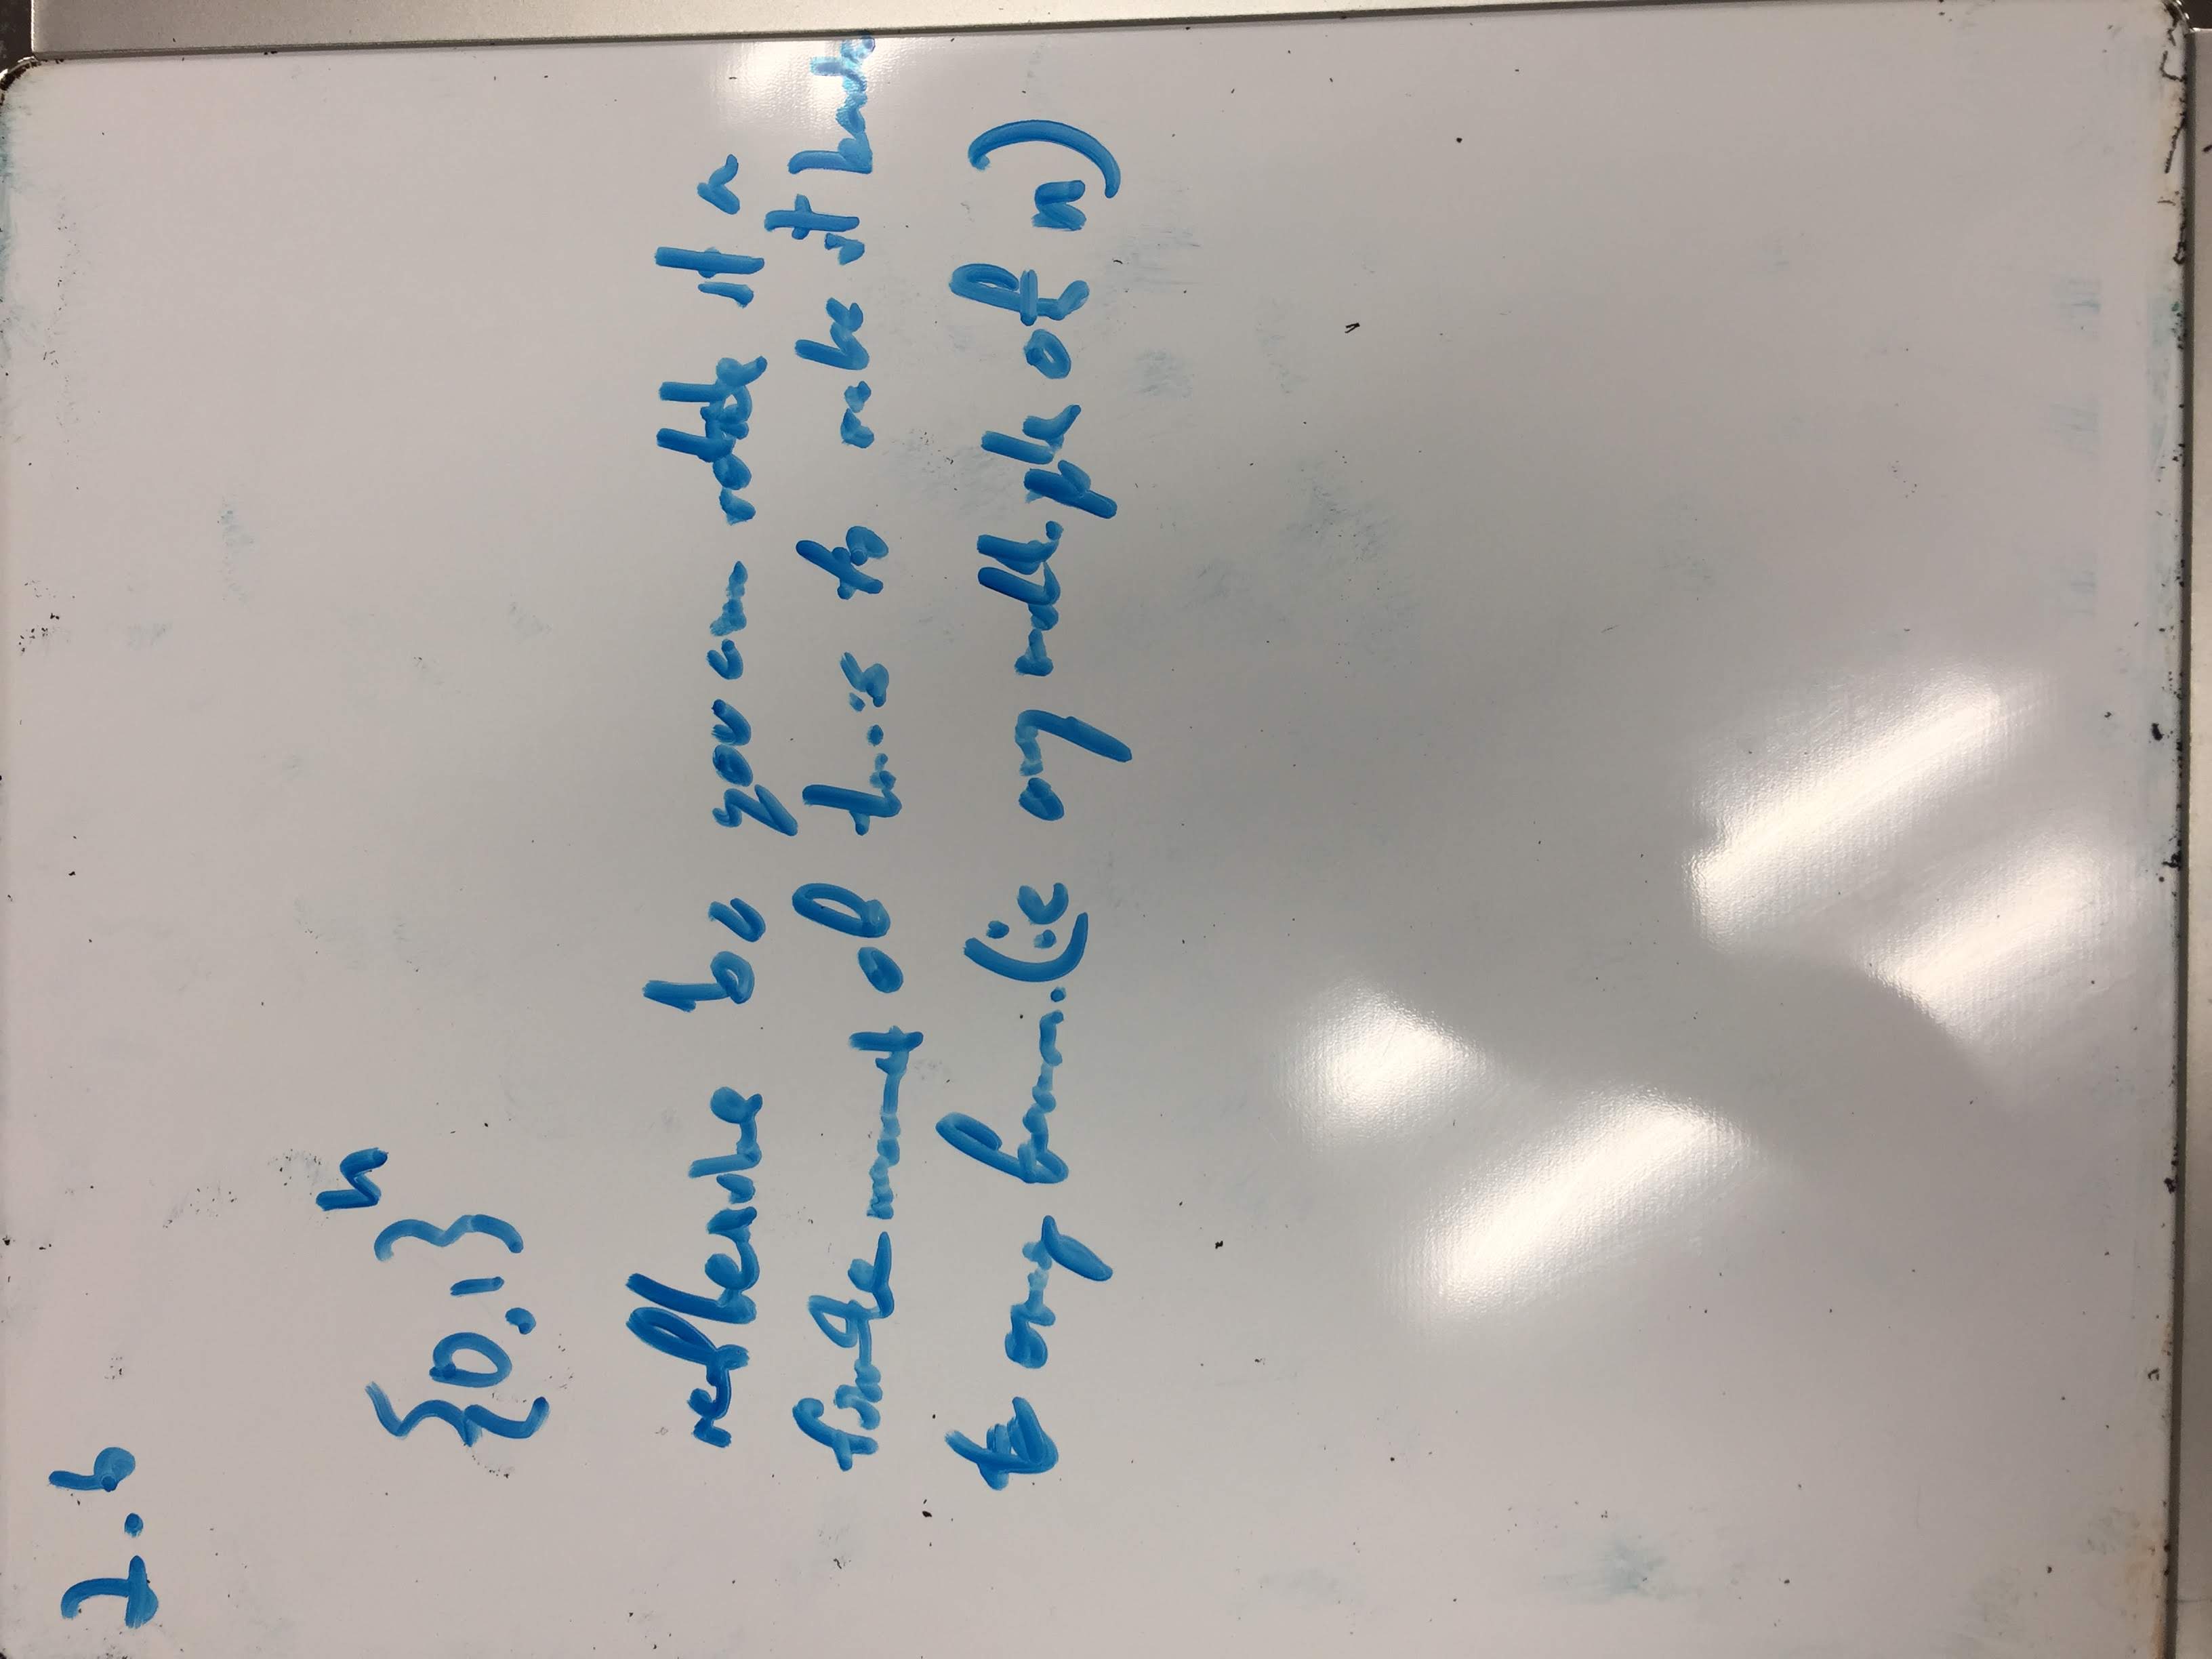 2.6
{0,1}^n
reflexive bc you can rotate it a
finite amount of times to make it back
to any form. (ie any multiple of n)